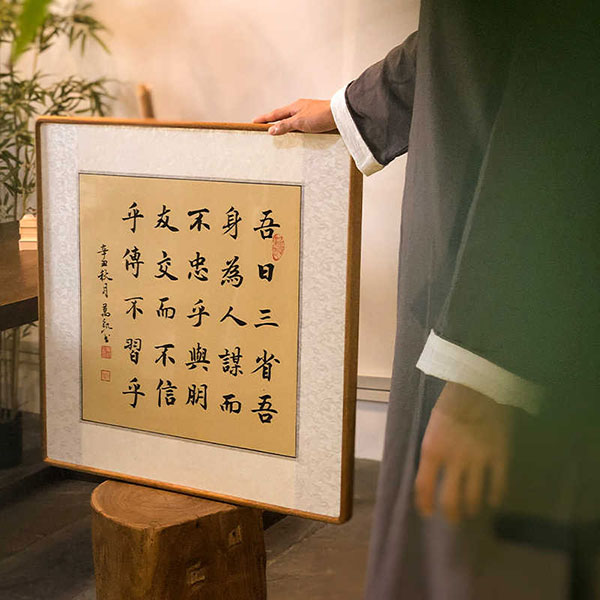 吾日三省吾
身為人謀而
不忠乎與朋
友交而不信
乎傳不習乎
辛丑秋月